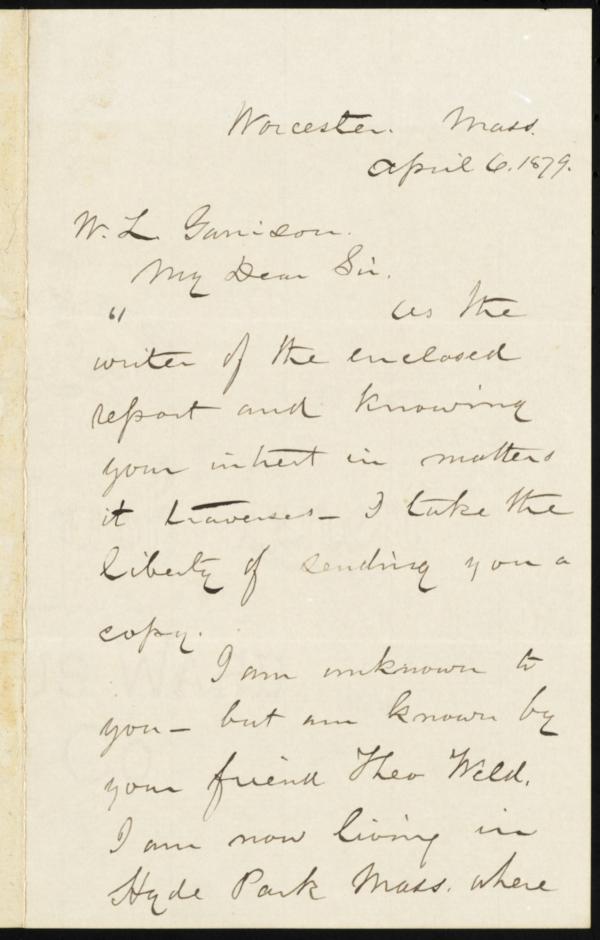 Worcester. Mass.
April 6. 1879.
W. L. Garrison.
My Dear Sir.
" As the
writer of the enclosed
report and knowing
your intrest in matters
it traverses — I take the
liberty of sending you a
copy.
I am unknown to
you — but am known by
your friend Theo Weld.
I am now living in
Hyde Park Mass. where